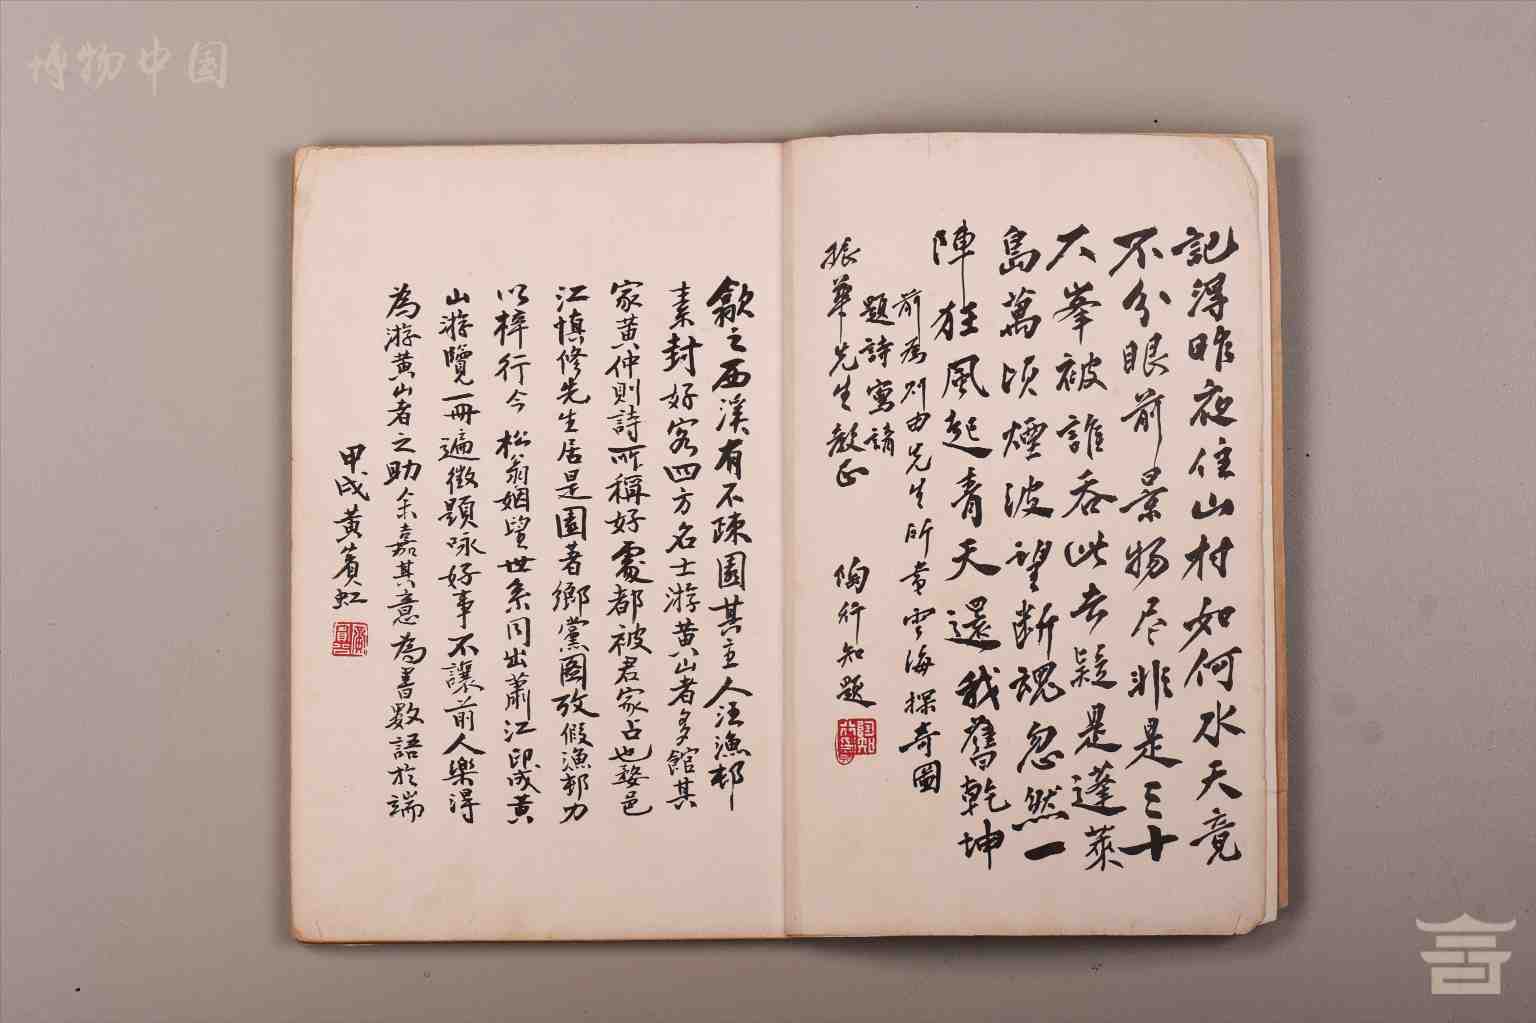 博物中国
記得昨夜住山村如何水天竟
不分眼前景物尽非是三十
六峯被誰吞此去疑是蓬萊
島萬頃煙波望斷魂忽然一
陣狂風起青天還我舊乾坤
前為 先生所畫雲海探奇圖
題詩寫請
振華先生教正
陶行知題
歙之西溪有不疎園其主人汪漁邨
素封好客四方名士游黄山者多館其
家黄仲則詩所稱好處都被君家占也婺邑
江慎修先生居是園著鄉黨圖攷假漁邨力
以梓行今松翁姻望世系同出蕭江印成黄
山游覽一冊遍徵題咏好事不讓前人樂得
為游黄山者之助余嘉其意為書數語於端
甲戌黄賓虹